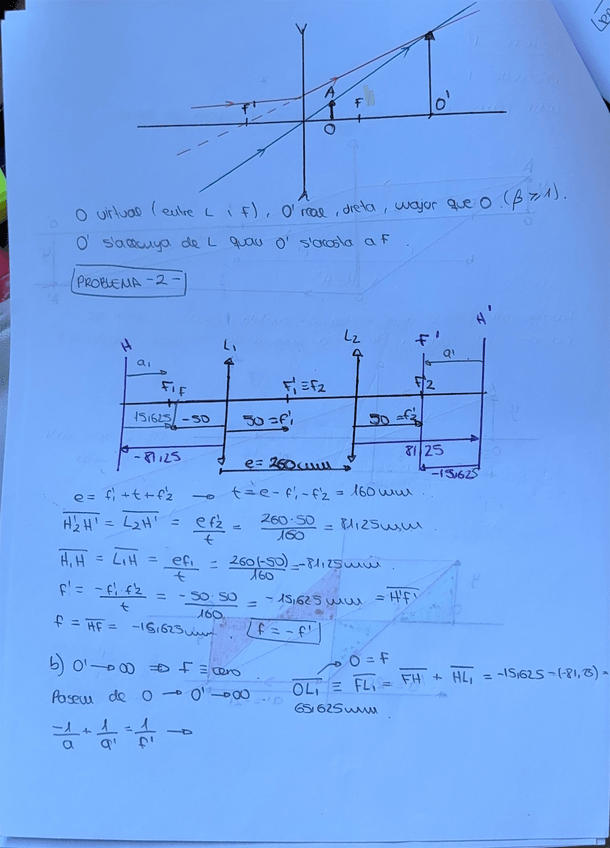 Y
F'
A
F
O
O'
O virtual (entre L i F), O' real, dreta, major que O (β ≥ 1).
O' s'allunya de L quan O' s'acosta a F.
PROBLEMA -2-
H L₁ L₂ F' H'
a₁ a'
F₁ F F₁' ≡ F₂ F₂'
15,625 -50 50 = f₁' 50 = f₂'
-81,25 81,25
e = 260 mm -15,625
e = f₁' + t + f₂' → t = e - f₁' - f₂' = 160 mm.
H₂'H' = L₂H' = e f₂' / t = 260·50 / 160 = 81,25 mm.
H₁H = L₁H = e f₁ / t = 260(-50) / 160 = -81,25 mm.
f' = -f₁'·f₂' / t = -50·50 / 160 = -15,625 mm = H'F'
f = HF = -15,625 mm. f = -f'
b) O' → ∞ ⇒ F ≡ zero. → O = F
Posem de O → O' → ∞ OL₁ ≡ FL₁ = FH + HL₁ = -15,625 - (-81,25) =
65,625 mm.
-1/a + 1/a' = 1/f' →